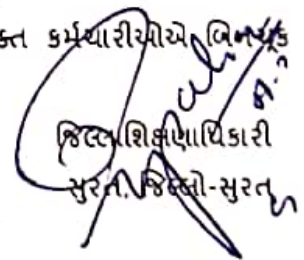 ક્ત કર્મચારીઓએ બિનચૂક
જિલ્લા શિક્ષણાધિકારી
સુરત, જિલ્લો-સુરત